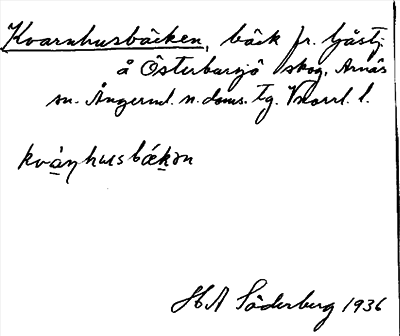 Kvarnhusbäcken, bäck fr. Gåstj.
å Österbursjö skog, Arnäs
sn. Ångerml. n. doms. tg. Vnorrl. l.
kvàṇhusbǽkən
H A Söderberg 1936